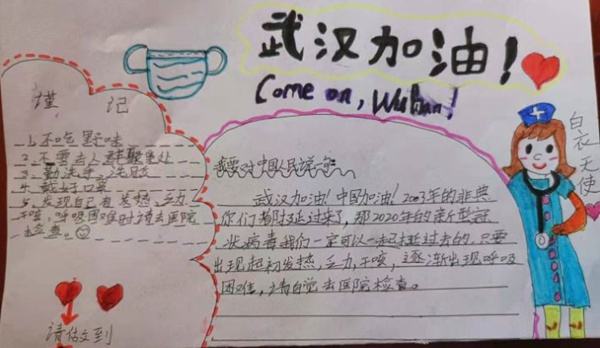 武汉加油!
Come on, Wuhan!
谨记
1、不吃野味
2、不要去人群聚集处
3、勤洗手、洗尽
4、戴好口罩
5、发现自己有发热，乏力
干咳，呼吸困难时请去医院
检查。
请做到
我要对中国人民说一句
武汉加油!中国加油!2003年的非典
你们都挺过来了,那2020年的新型冠
状病毒我们一定可以一起挺过去的,只要
出现起初发热,乏力,干咳,逐渐出现呼吸
困难,请自觉去医院检查。
白衣天使